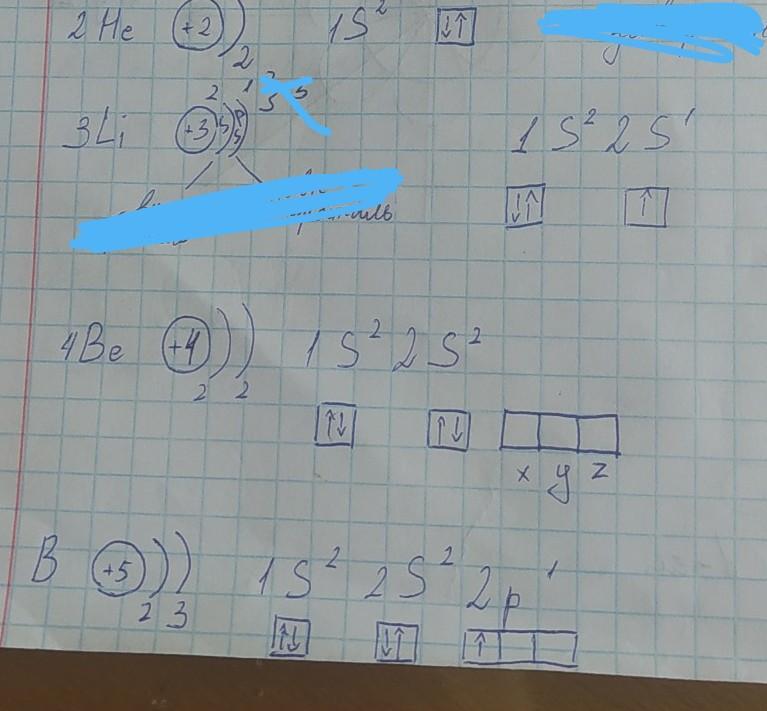 2He +2 1S² ↓↑
2
2 1
3Li +3 1S² 2S¹
↓↑ ↑
4Be +4 1S² 2S²
2 2
↑↓ ↑↓
x y z
B +5 1S² 2S² 2p¹
2 3
↑↓ ↓↑ ↑